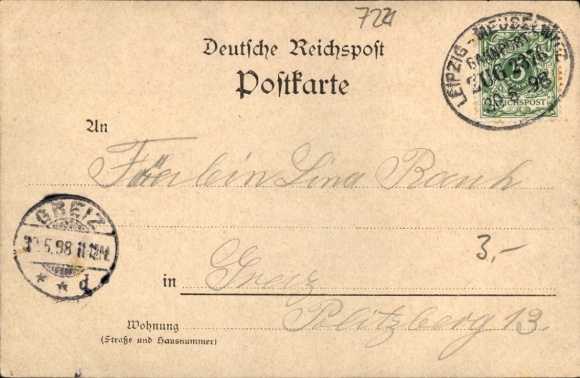 724
Deutsche Reichspost
Postkarte
LEIPZIG - MEUSELWITZ
BAHNPOST
ZUG
30.5. 98
5
REICHSPOST
An
Fräulein Lina Rauh
GREIZ
30.5.98
d
3,-
in Greiz
Pölitzberg 13.
Wohnung
(Straße und Hausnummer)